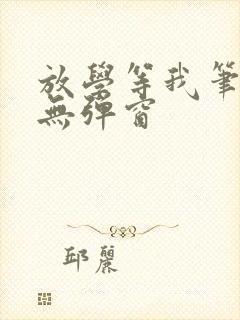 放學等我筆
無彈窗
邱麗